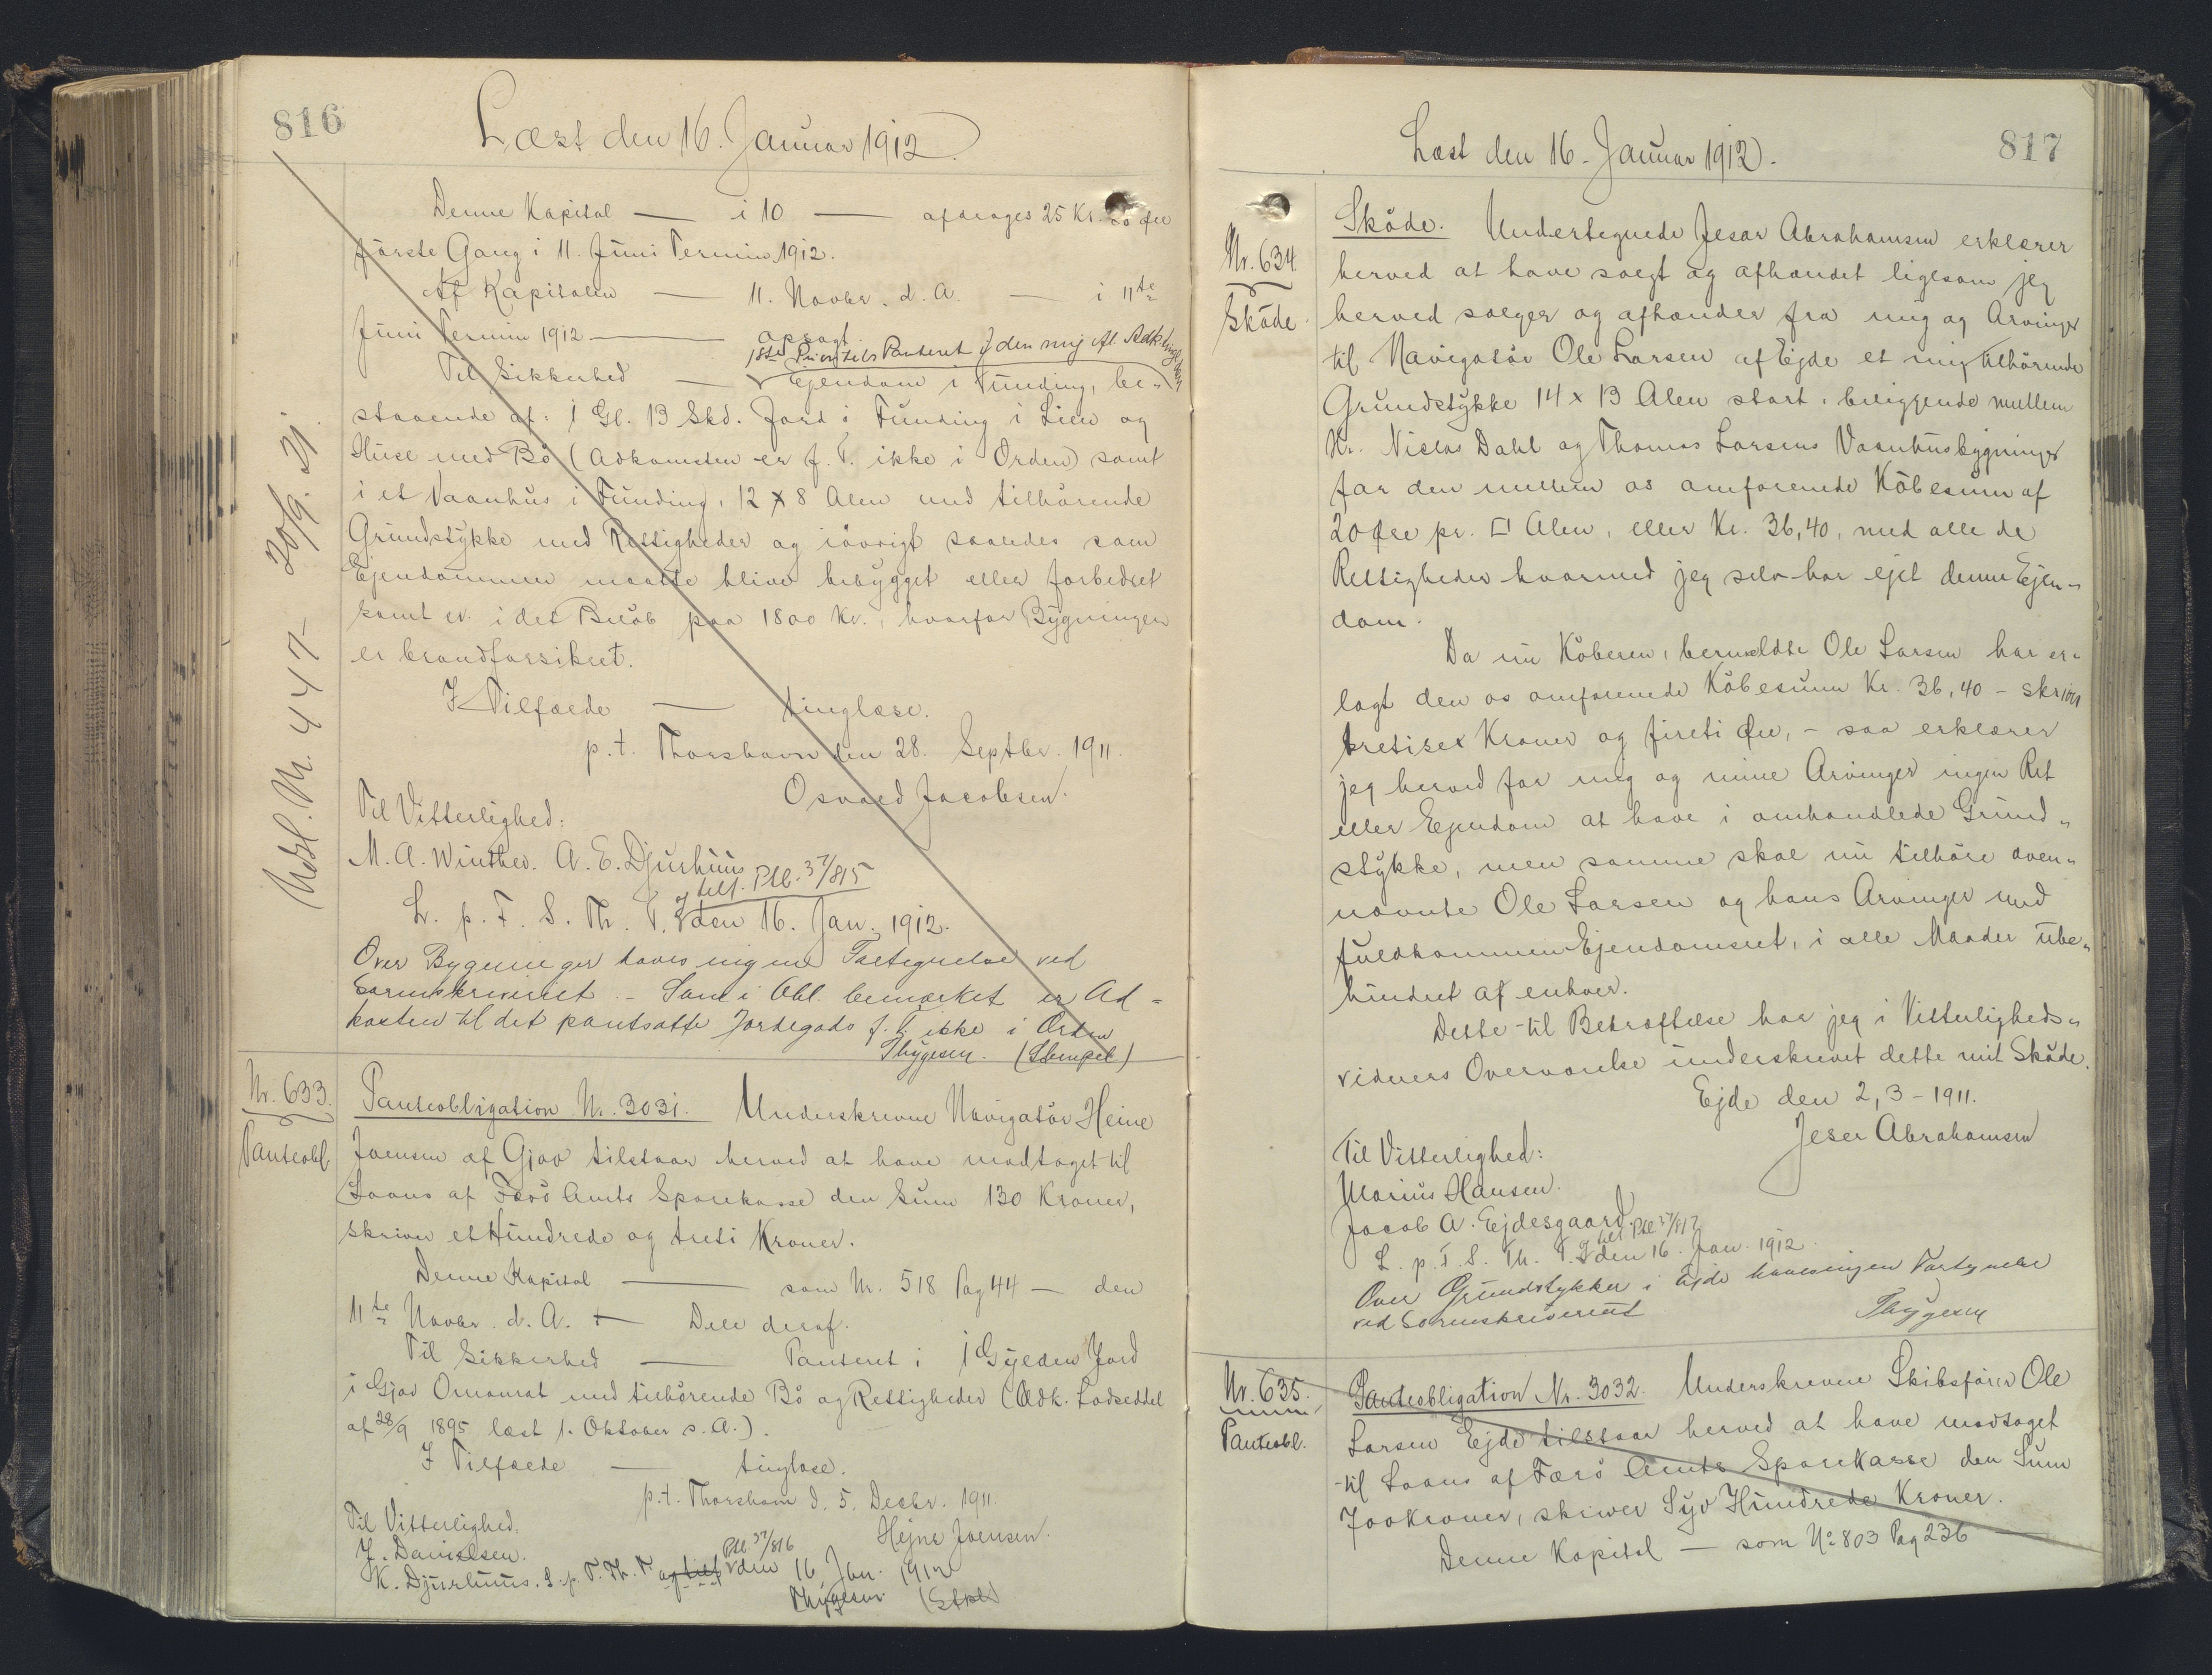 816
Læst den 16. Januar 1912.
Denne Kapital — i 10 — afdrages 25 Kr. Øre
første Gang i 11. Juni Termin 1912.
Af Kapitalen — 11. Novbr. d. A. — i 11te
Juni Termin 1912 — opsagt.
1ste Prioritets Panteret i den mig ifl. Adk.
Til Sikkerhed — Ejendom i Funding, be-
staaende af: 1 Gl. 13 Skd. Jord i Funding i Lien og
Huse med Bø (Adkomsten er f. T. ikke i Orden) samt
i et Vaanhus i Funding, 12 x 8 Alen med tilhørende
Grundstykke med Rettigheder og iøvrigt saaledes som
Ejendommen maatte blive bebygget eller forbedret
samt ev. i det Beløb paa 1800 Kr., hvorfor Bygningen
er brandforsikret.
I Tilfælde — tinglæse.
p. t. Thorshavn den 28. Septbr. 1911.
Osvald Jacobsen.
Til Vitterlighed:
M. A. Winther. A. E. Djurhuus
tilf. Ptb. 37/815
L. p. F. S. Th. T. den 16. Jan. 1912.
Over Bygninger haves ingen Fortegnelse ved
Sorenskriveriet. – Som i Obl. bemærket er Ad-
komsten til det pantsatte Jordegods f. T. ikke i Orden
Thygesen. (Stempel)
Udsl. Nr. 447- 20/9. 21.
Nr. 633.
Panteobl.
Panteobligation Nr. 3031. Underskrevne Navigatør Heine
Joensen af Gjov tilstaar herved at have modtaget til
Laans af Færø Amts Sparekasse den Sum 130 Kroner,
skriver et Hundrede og treti Kroner.
Denne Kapital — som Nr. 518 Pag 44 — den
11te Novbr. d. A. — Dele deraf.
Til Sikkerhed — Panteret i 1 Gylden Jord
i Gjov Omaurat med tilhørende Bø og Rettigheder (Adk. Lodseddel
af 28/9 1895 læst 1. Oktober s. A.).
I Tilfælde — tinglæse.
p. t. Thorshavn d. 5. Decbr. 1911.
Hejne Joensen.
Til Vitterlighed.
J. Danielsen.
Ptb 37/816
K. Djurhuus. L. p. F. Th. T. og tilf den 16. Jan. 1912
Thygesen. (Stpl)
817
Læst den 16. Januar 1912.
Nr. 634
Skøde.
Skøde. Undertegnede Jesar Abrahamsen erklærer
herved at have solgt og afhændet ligesom jeg
herved sælger og afhænder fra mig og Arvinger
til Navigatør Ole Larsen af Ejde et mig tilhørende
Grundstykke 14 x 13 Alen stort, beliggende mellem
Hr. Niclas Dahl og Thomas Larsens Vaanhusbygninger
for den mellem os omforenede Købesum af
20 Øre pr. □ Alen, eller Kr. 36,40, med alle de
Rettigheder hvormed jeg selv har ejet denne Ejen-
dom.
Da nu Køberen, bemeldte Ole Larsen har er-
lagt den os omforenede Købesum Kr. 36,40 – skriver
tretisex Kroner og firti Øre, – saa erklærer
jeg herved for mig og mine Arvinger ingen Ret
eller Ejendom at have i omhandlede Grund-
stykke, men samme skal nu tilhøre oven-
nævnte Ole Larsen og hans Arvinger med
fuldkommen Ejendomsret, i alle Maader ube-
hindret af enhver.
Dette til Bekræftelse har jeg i Vitterligheds-
vidners Overværelse underskrevet dette mit Skøde.
Ejde den 2,3 – 1911.
Jeser Abrahamsen
Til Vitterlighed:
Marius Hansen.
Jacob A. Ejdesgaard.
tilf. Ptb 37/817
L. p. F. S. Th. T. den 16. Jan. 1912
Over Grundstykker i Ejde haves ingen Fortegnelse
ved Sorenskriveriet
Thygesen
Nr. 635.
Panteobl.
Panteobligation Nr. 3032. Underskrevne Skibsfører Ole
Larsen Ejde tilstaar herved at have modtaget
til Laans af Færø Amts Sparekasse den Sum
700 Kroner, skriver Syv Hundrede Kroner.
Denne Kapital — som No 803 Pag 236 —